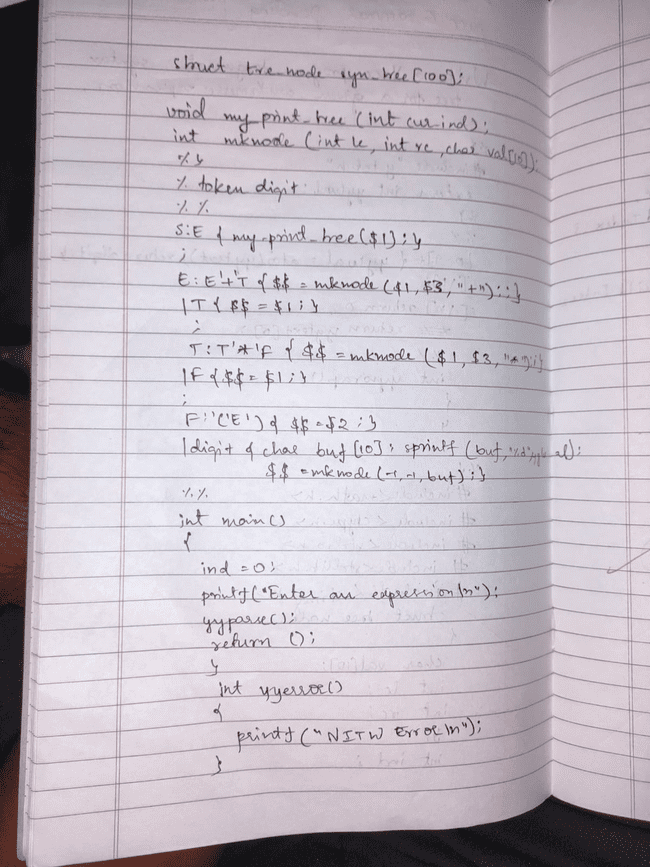 struct tre_node syn_tree [100];
void my_print_tree (int cur_ind);
int mknode (int lc, int rc, char val[10]);
% }
% token digit
% %
S:E { my_print_tree($1); }
;
E: E'+'T { $$ = mknode ($1, $3, "+"); ; }
|T { $$ = $1; }
;
T: T'*'F { $$ = mkmode ($1, $3, "*"); }
|F { $$ = $1; }
;
F: '('E') { $$ = $2 ; }
|digit { char buf [10]; sprintf (buf, "%d", al);
$$ = mknode (-1, -1, buf); }
% %
int main()
{
ind = 0;
printf("Enter an expression\n");
yyparse();
return ();
}
int yyerror()
{
printf ("NITW Error\n");
}